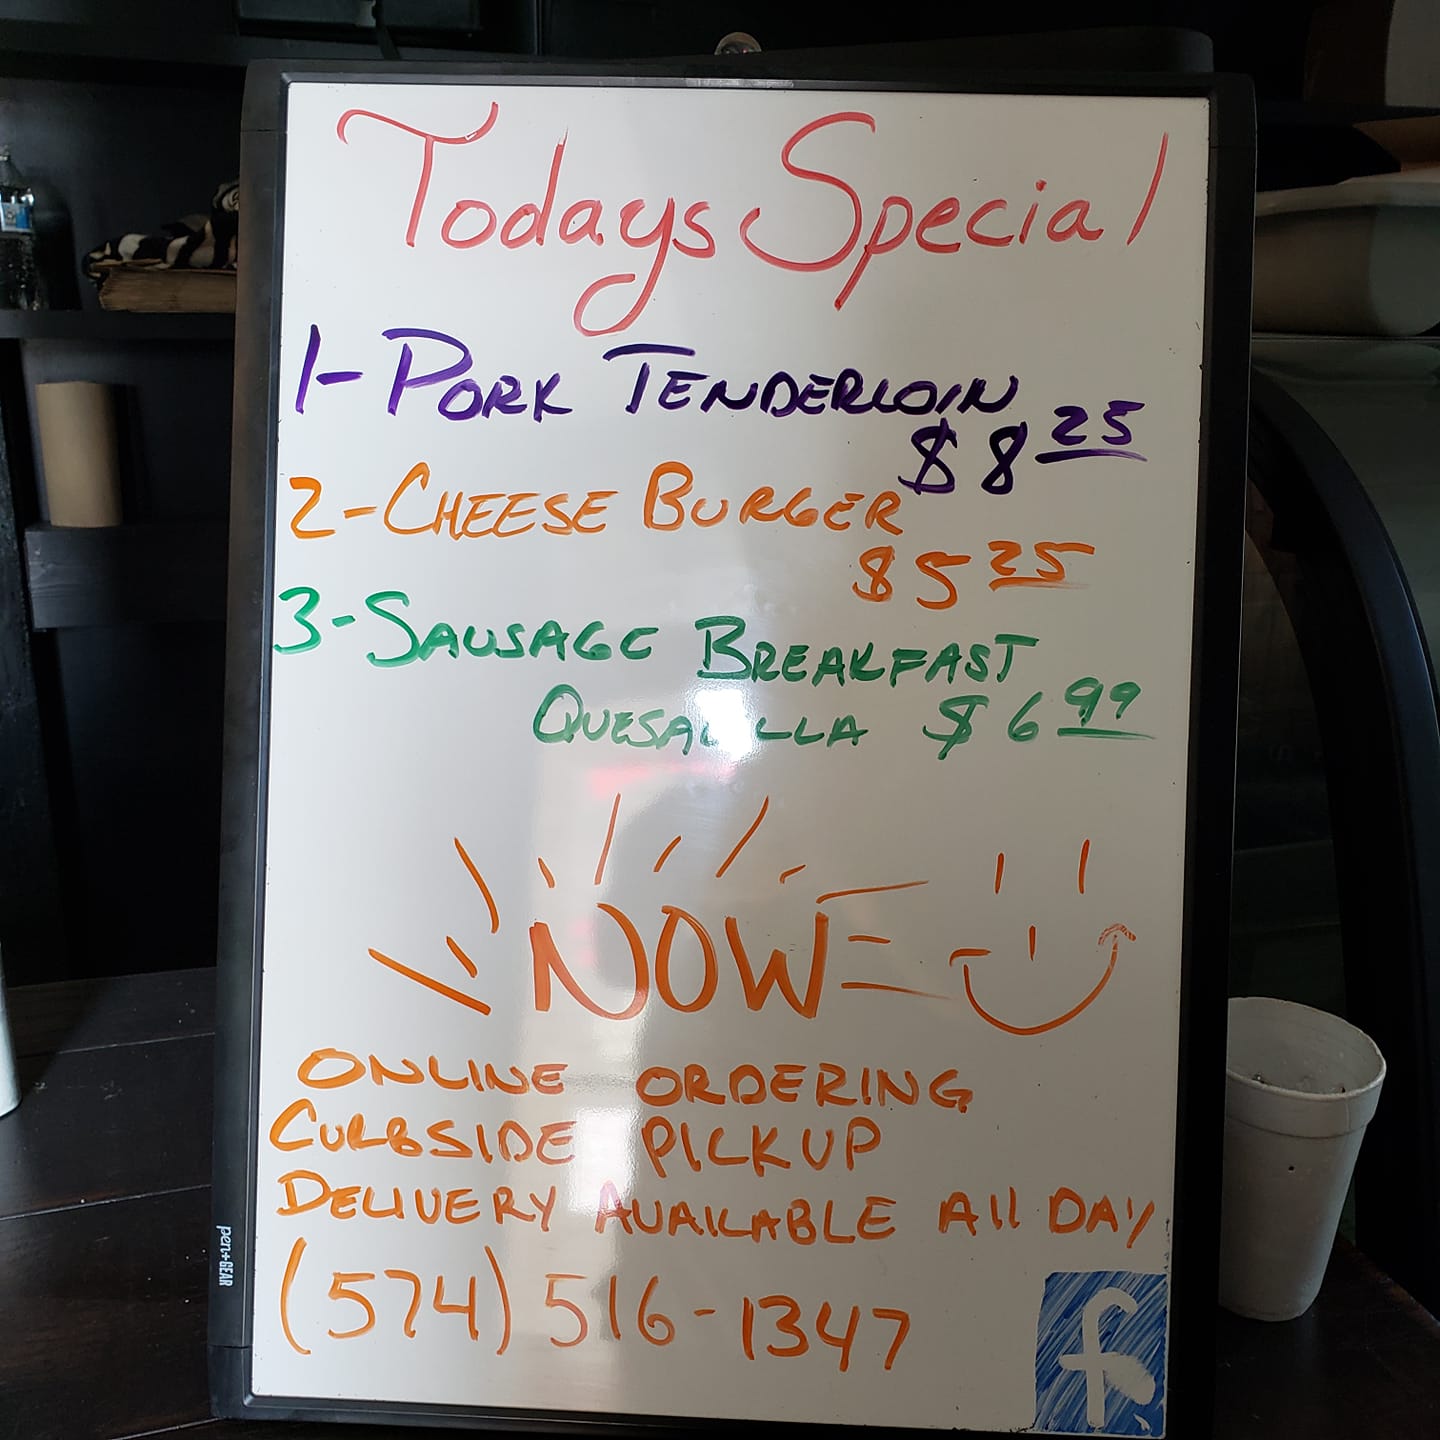 Todays Special
1-PORK TENDERLOIN
$8 25
2-CHEESE BURGER
$5 25
3-SAUSAGE BREAKFAST
QUESADILLA $6 99
NOW
ONLINE ORDERING
CURBSIDE PICKUP
DELIVERY AVAILABLE All DAY
(574) 516-1347
f
pen+GEAR